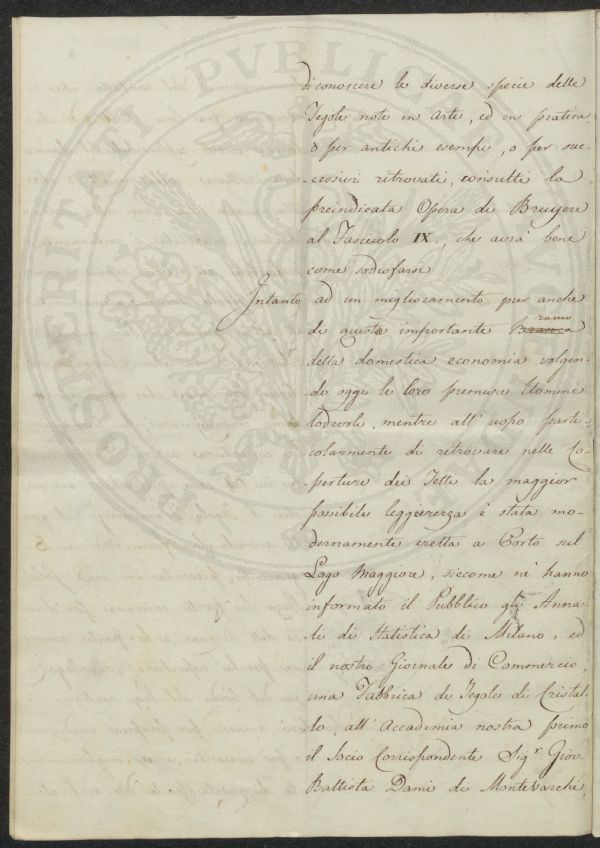 di conoscere le diverse specie delle
Tegole note in Arte, ed in pratica
o per antichi esempi, o per suc-
-cessivi ritrovati, consulti la
preindicata Opera di Bruyere
al Fascicolo IX., che avrà bene
come sodisfarsi
Intanto ad un miglioramento pur anche
ramo
di questa importante Branca
della domestica economia volgen-
-do oggi le loro premure Uomini
lodevoli, mentre all' uopo parti-
-colarmente di ritrovare nelle Co-
-perture dei Tetti la maggior
possibile leggerezza è stata mo-
-dernamente eretta a Porto sul
Lago Maggiore, siccome ne hanno
informato il Pubblico gli Anna-
-li di Statistica di Milano, ed
il nostro Giornale di Commercio,
una Fabbrica di Tegole di Cristal-
-lo, all' Accademia nostra primo
il Socio Corrispondente Sigr Giov.
Battista Dami di Montevarchi,